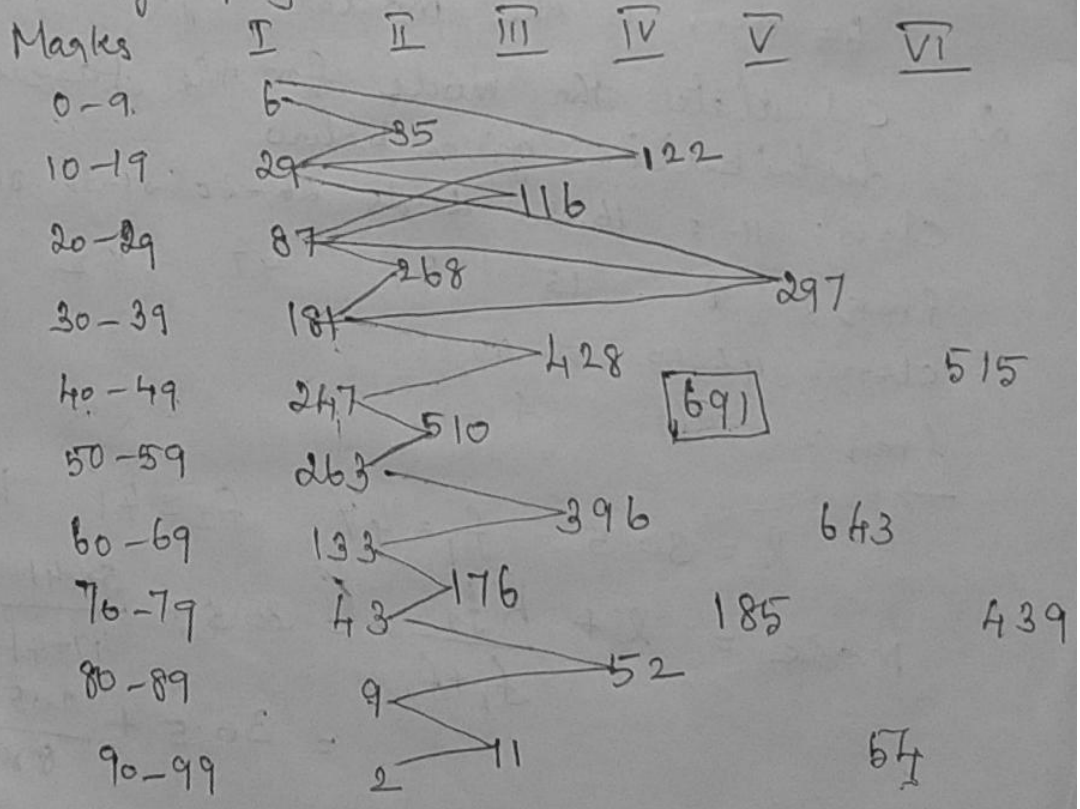 Marks I II III IV V VI
0-9 6
35
10-19 29 122
116
20-29 87
268 297
30-39 181
428 515
40-49 247 691
510
50-59 263
396 643
60-69 133
176 185 439
70-79 43
52
80-89 9
11 54
90-99 2